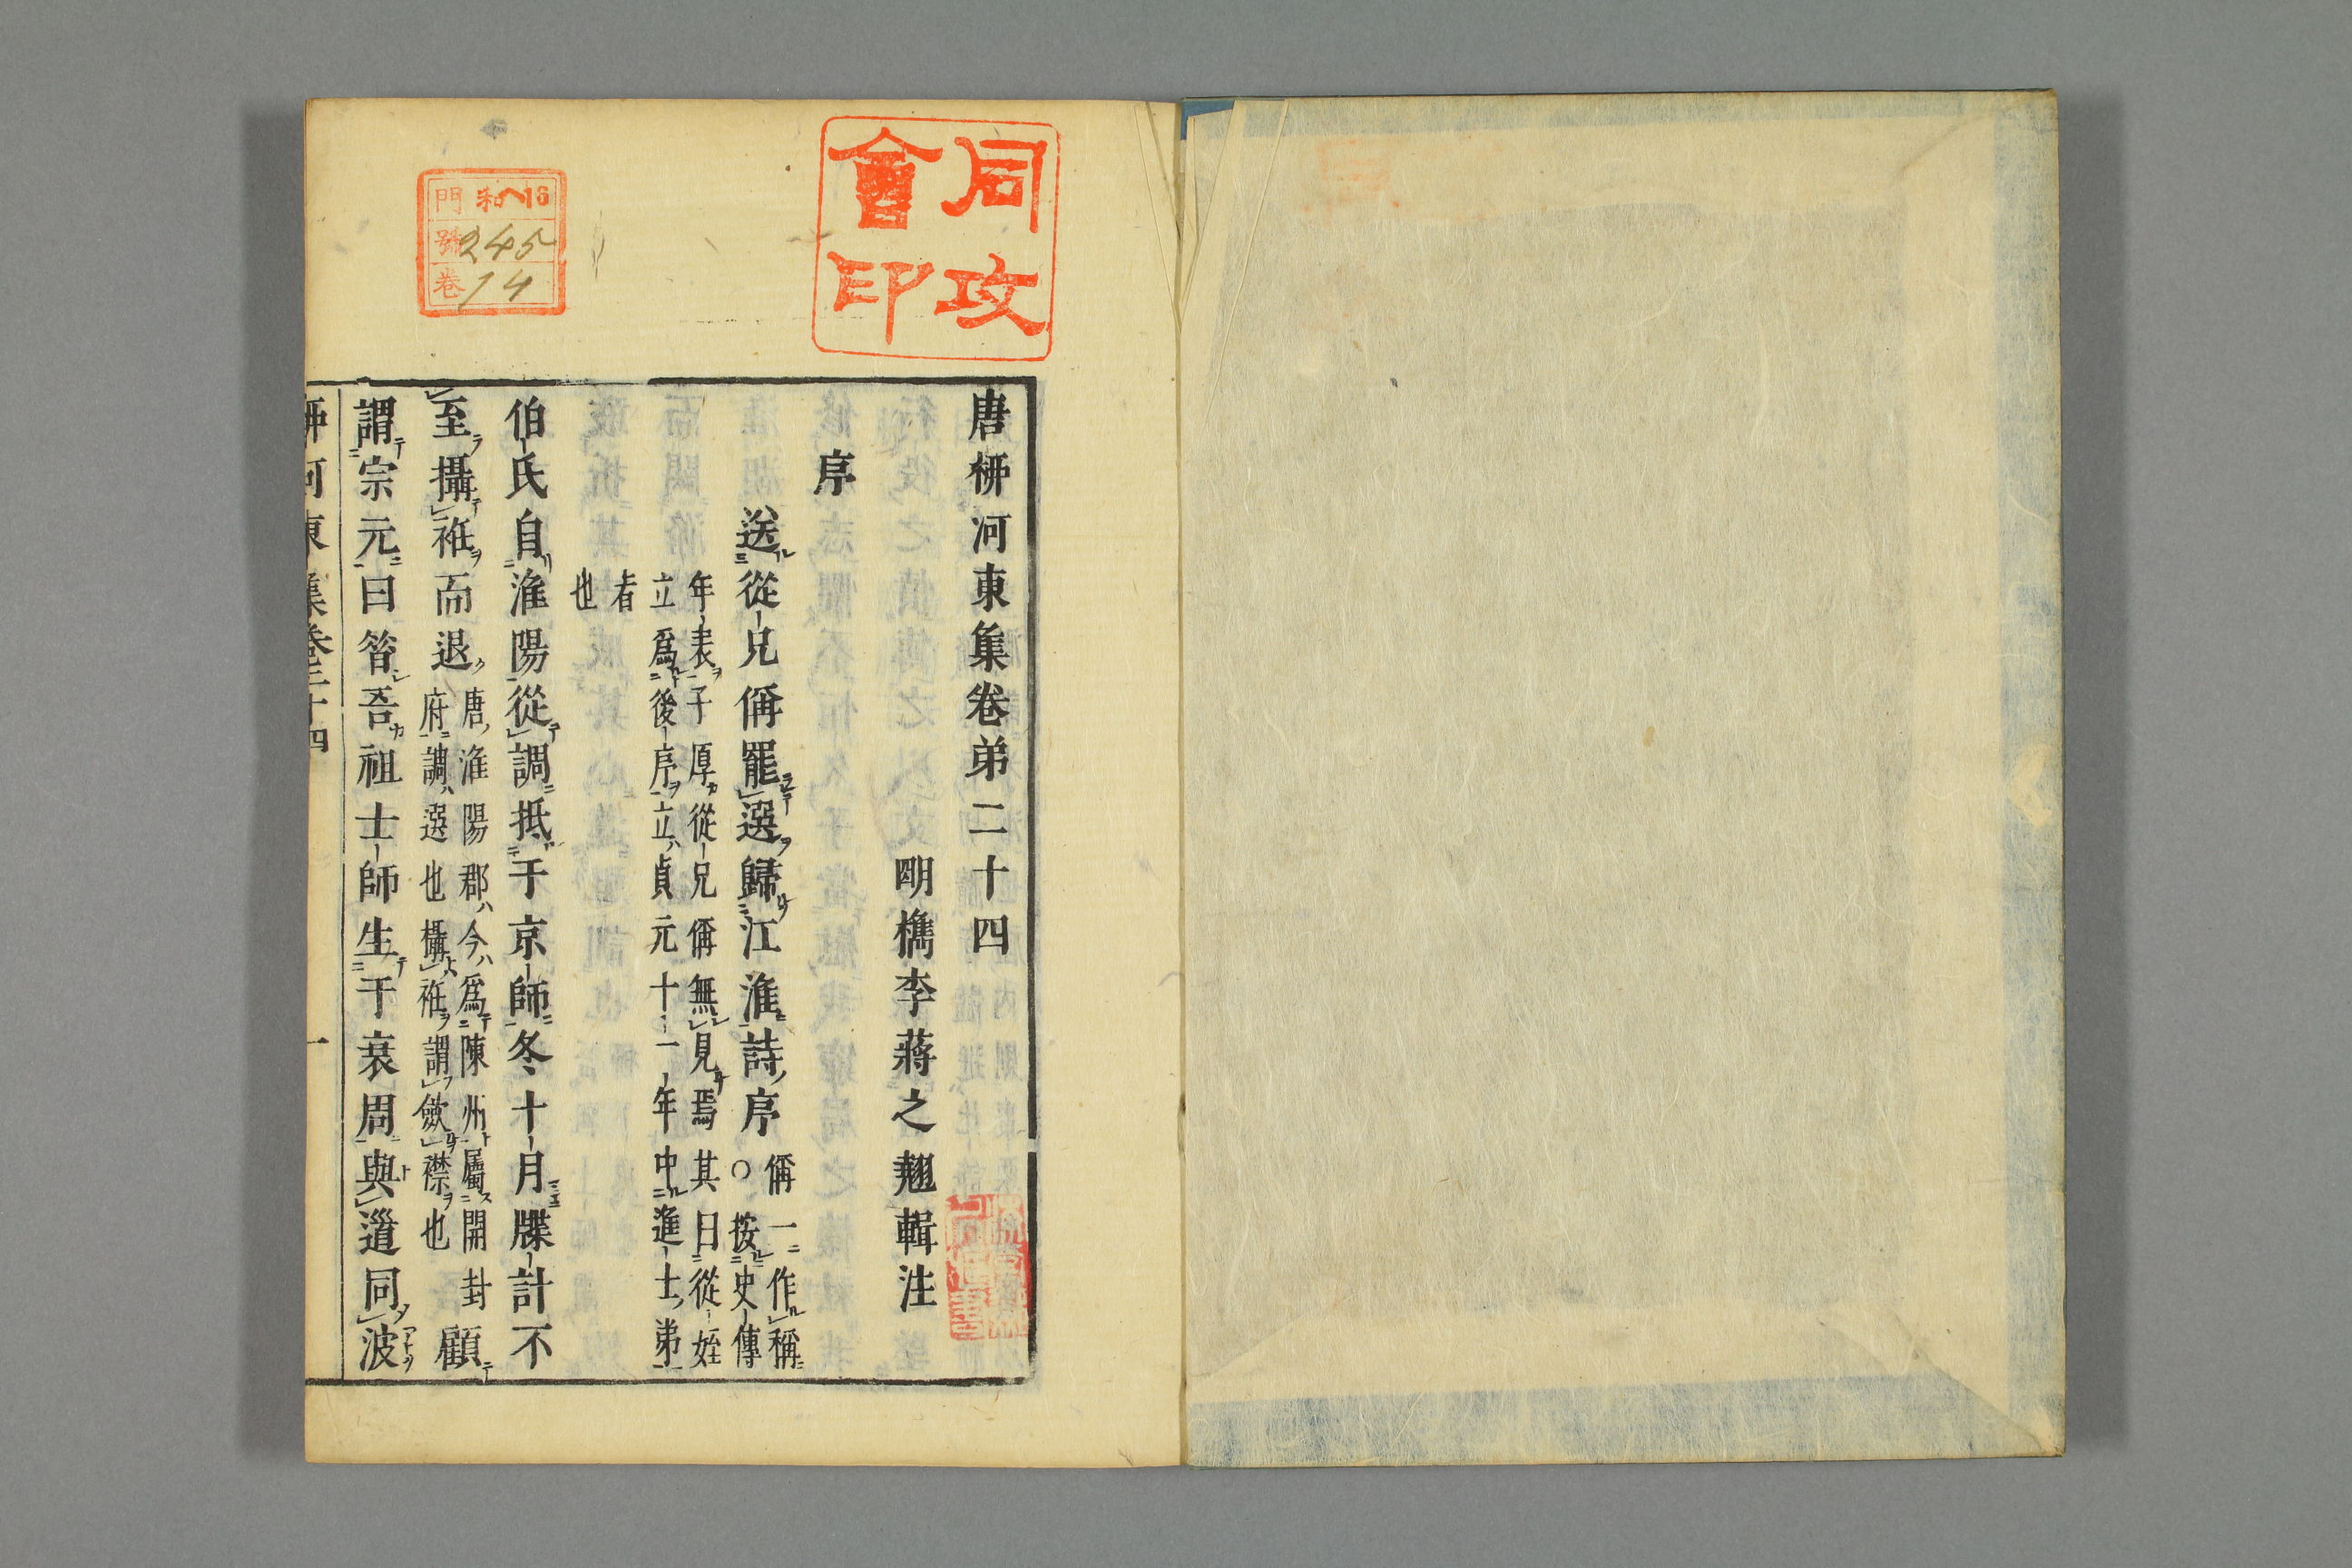 同攻
會印
門 和 ヘ16
號 245
卷 14
唐柳河東集卷弟二十四
明檇李蔣之翹輯注
序
送從兄偁罷選歸江淮詩序 偁一作稱
○按史傳
年表子厚從兄偁無見焉其曰從姪
立爲後序立貞元十一年中進士弟
者
也
伯氏自淮陽從調抵于京師冬十月牒計不
至攝袵而退 唐淮陽郡今爲陳州屬開封
府調選也攝袵謂斂襟也 顧
謂宗元曰昝吾祖士師生于衰周與道同波
柳河東集卷二十四
一